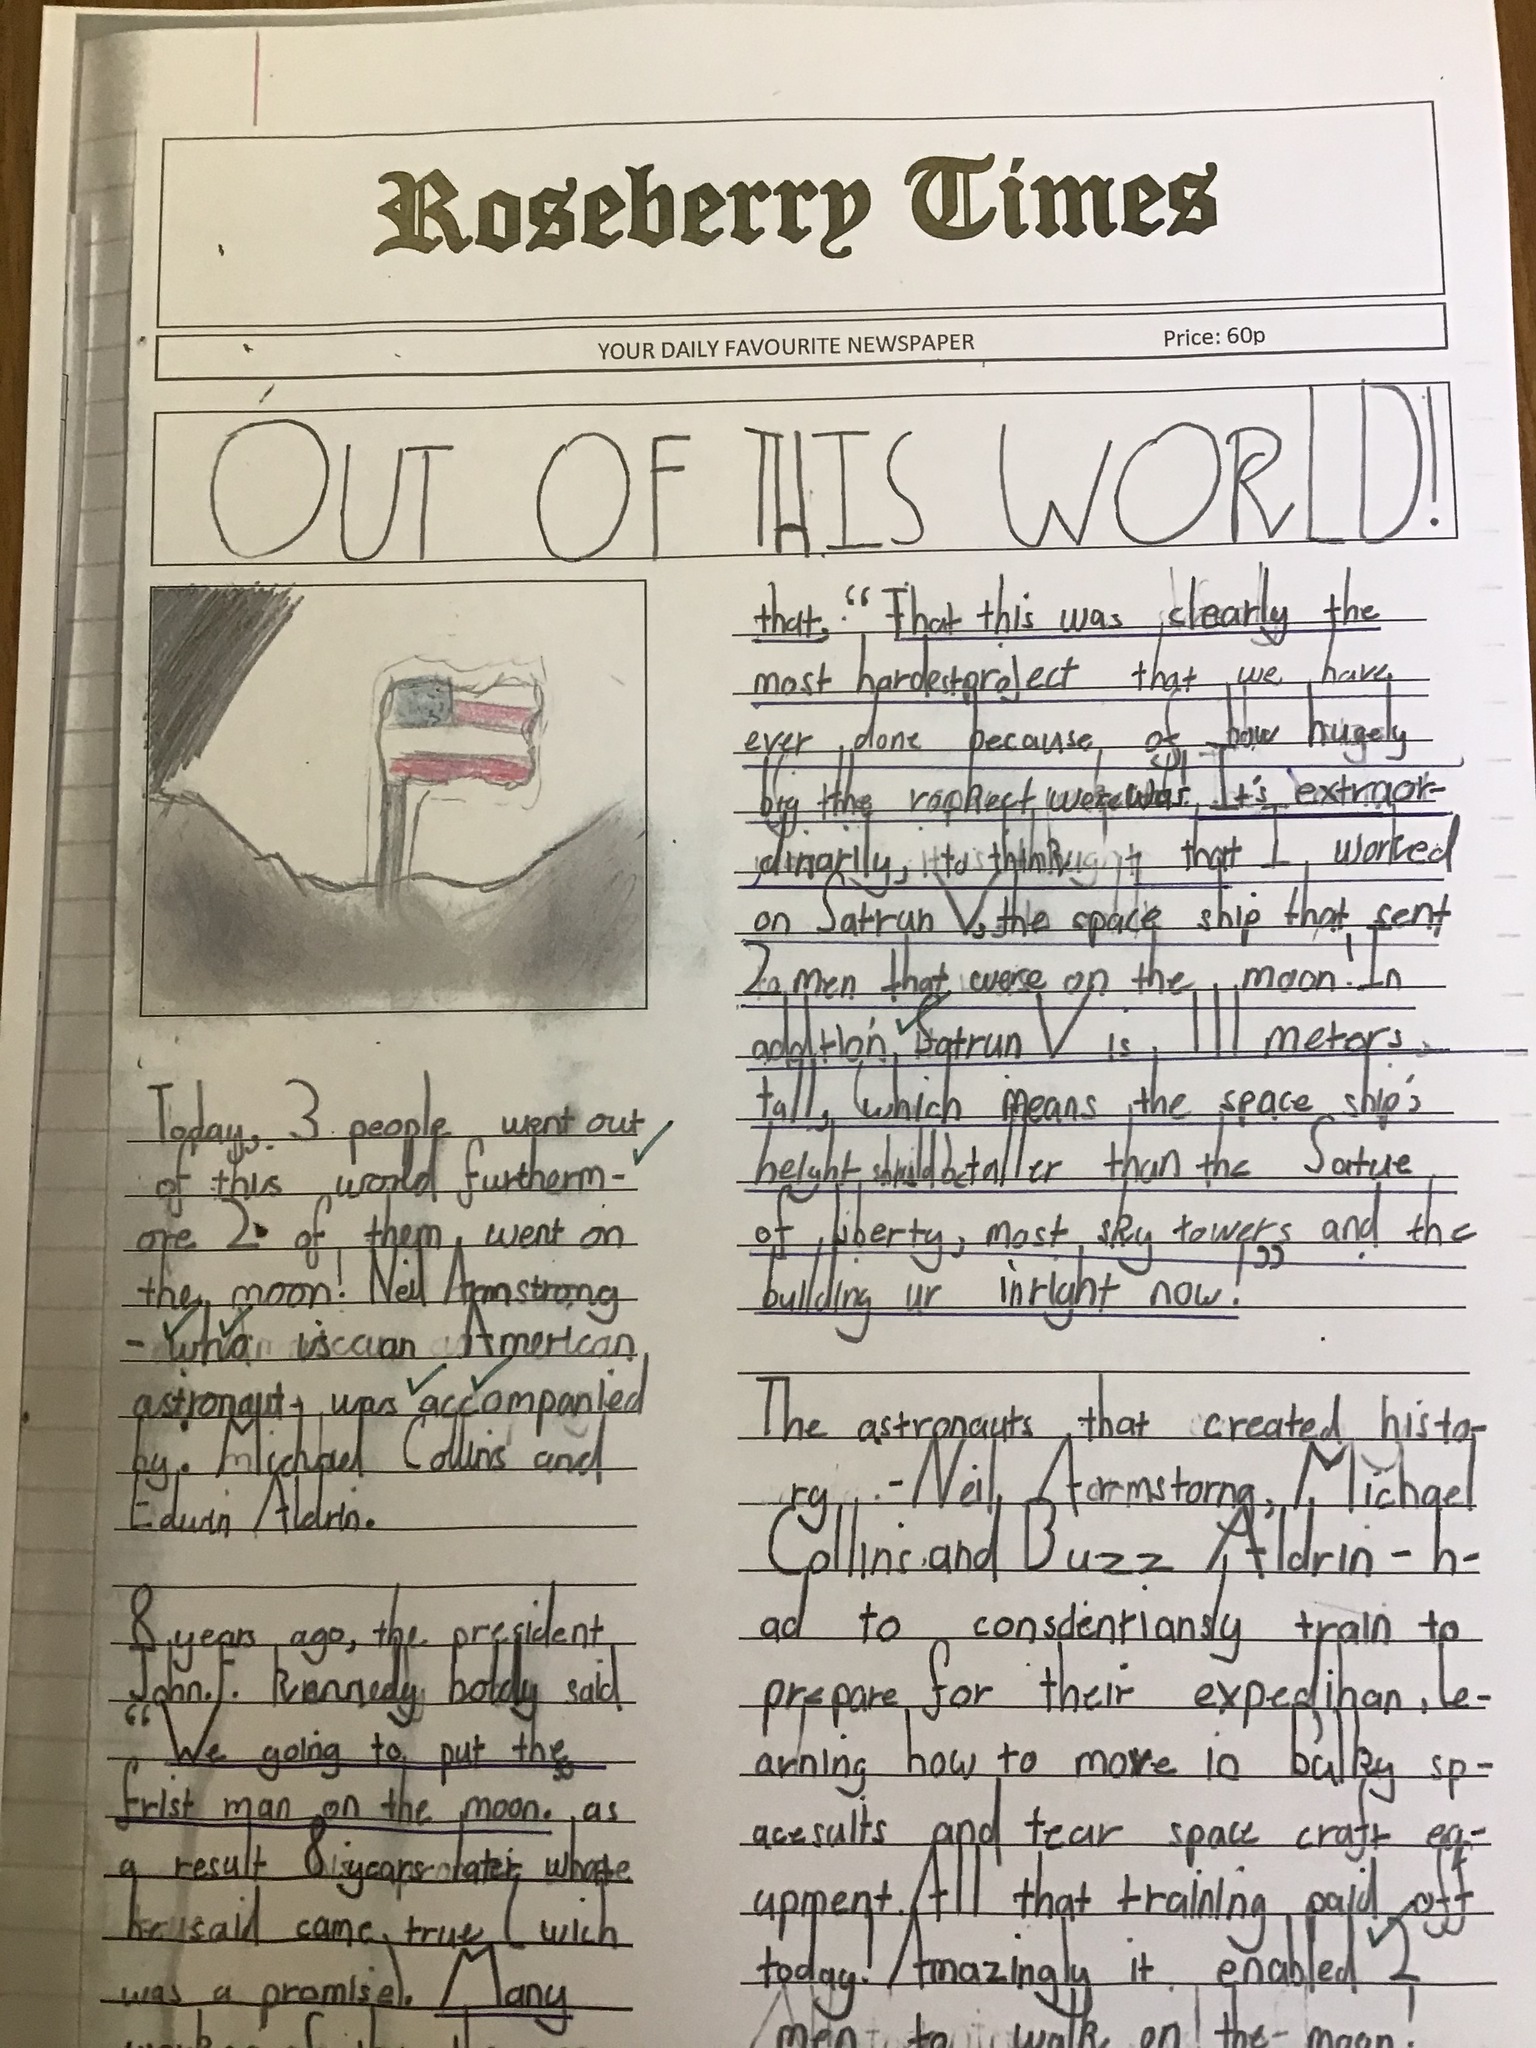 Roseberry Times
YOUR DAILY FAVOURITE NEWSPAPER
Price: 60p
OUT OF THIS WORLD!
Today, 3 people went out
of this world furtherm-
ore 2 of them went on
the moon! Neil Armstrong
- who is an American
astronaut, was accompanied
by. Michael Collins and
Edwin Aldrin.
8 years ago, the president
John.F. Kennedy boldy said
"We going to put the
frist man on the moon. as
a result 8 years later what
he said came true (wich
was a promise). Many
that, "That this was clearly the
most hardest project that we have
ever done because of how hugely
big the was. It's extraor-
dinarily, to think that I worked
on Satrun V, the space ship that sent
2 men that were on the moon! In
addition, Satrun V is 111 meters
tall, (which means the space ship's
height should be taller than the Satue
of liberty, most sky towers and the
building ur in right now!"
The astronauts that created histo-
ry, -Neil Armstorng, Michael
Collins and Buzz Aldrin - h-
ad to train to
prepare for their le-
arning how to move in bulky sp-
acesuits and space craft eq-
upment. All that training paid off
today! Amazingly it enabled 2
men to walk on the moon!